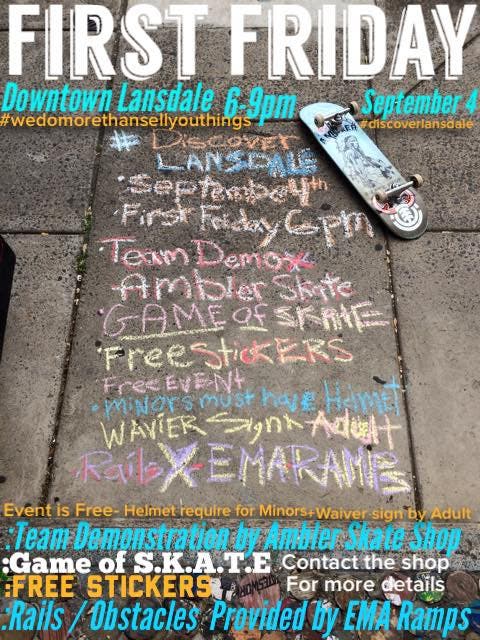 FIRST FRIDAY
Downtown Lansdale 6-9pm September 4
#wedomorethansellyouthings #discoverlansdale
AMBLER
# Discover
LANSDALE
• September 4th
• First Friday 6pm
Team Demo
Ambler Skate
GAME OF SKATE
• Free StickERS
FREE EVENT
• minors must have Helmet
WAVIER Signk Adult
• Rails X EMA RAMPS
Event is Free- Helmet require for Minors+Waiver sign by Adult
:Team Demonstration by Ambler Skate Shop
:Game of S.K.A.T.E Contact the shop
:FREE STICKERS For more details
:Rails / Obstacles Provided by EMA Ramps